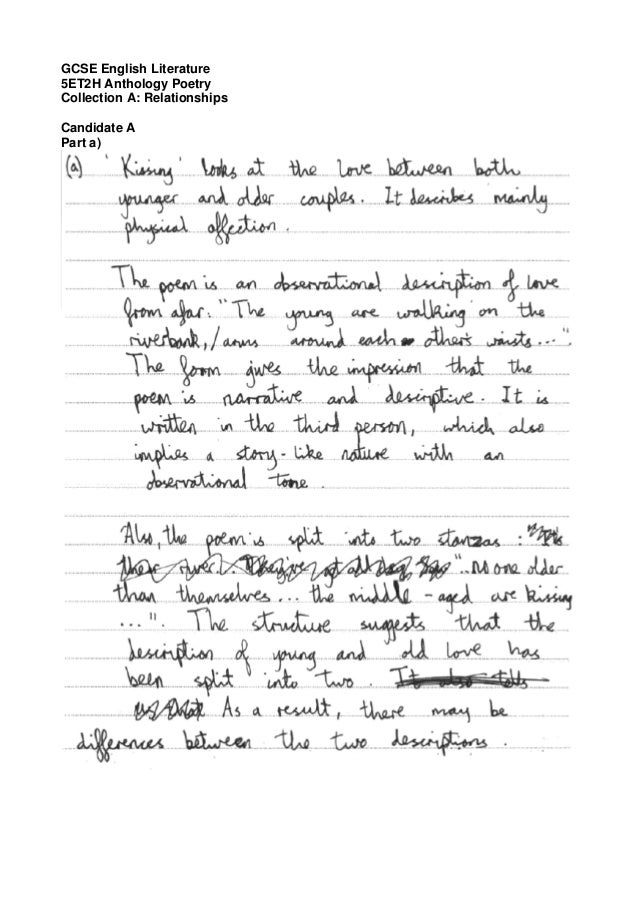 GCSE English Literature
5ET2H Anthology Poetry
Collection A: Relationships
Candidate A
Part a)
(a) 'Kissing' looks at the love between both
younger and older couples. It describes mainly
physical affection.
The poem is an observational description of love
from afar: "The young are walking on the
riverbank,/arms around each others waists...".
The form gives the impression that the
poem is narrative and descriptive. It is
written in the third person, which also
implies a story-like nature with an
observational tone.
Also, the poem is split into two stanzas :
"...no one older
than themselves... the middle-aged are kissing
...". The structure suggests that the
description of young and old love has
been split into two. It also tells
us that As a result, there may be
differences between the two descriptions.